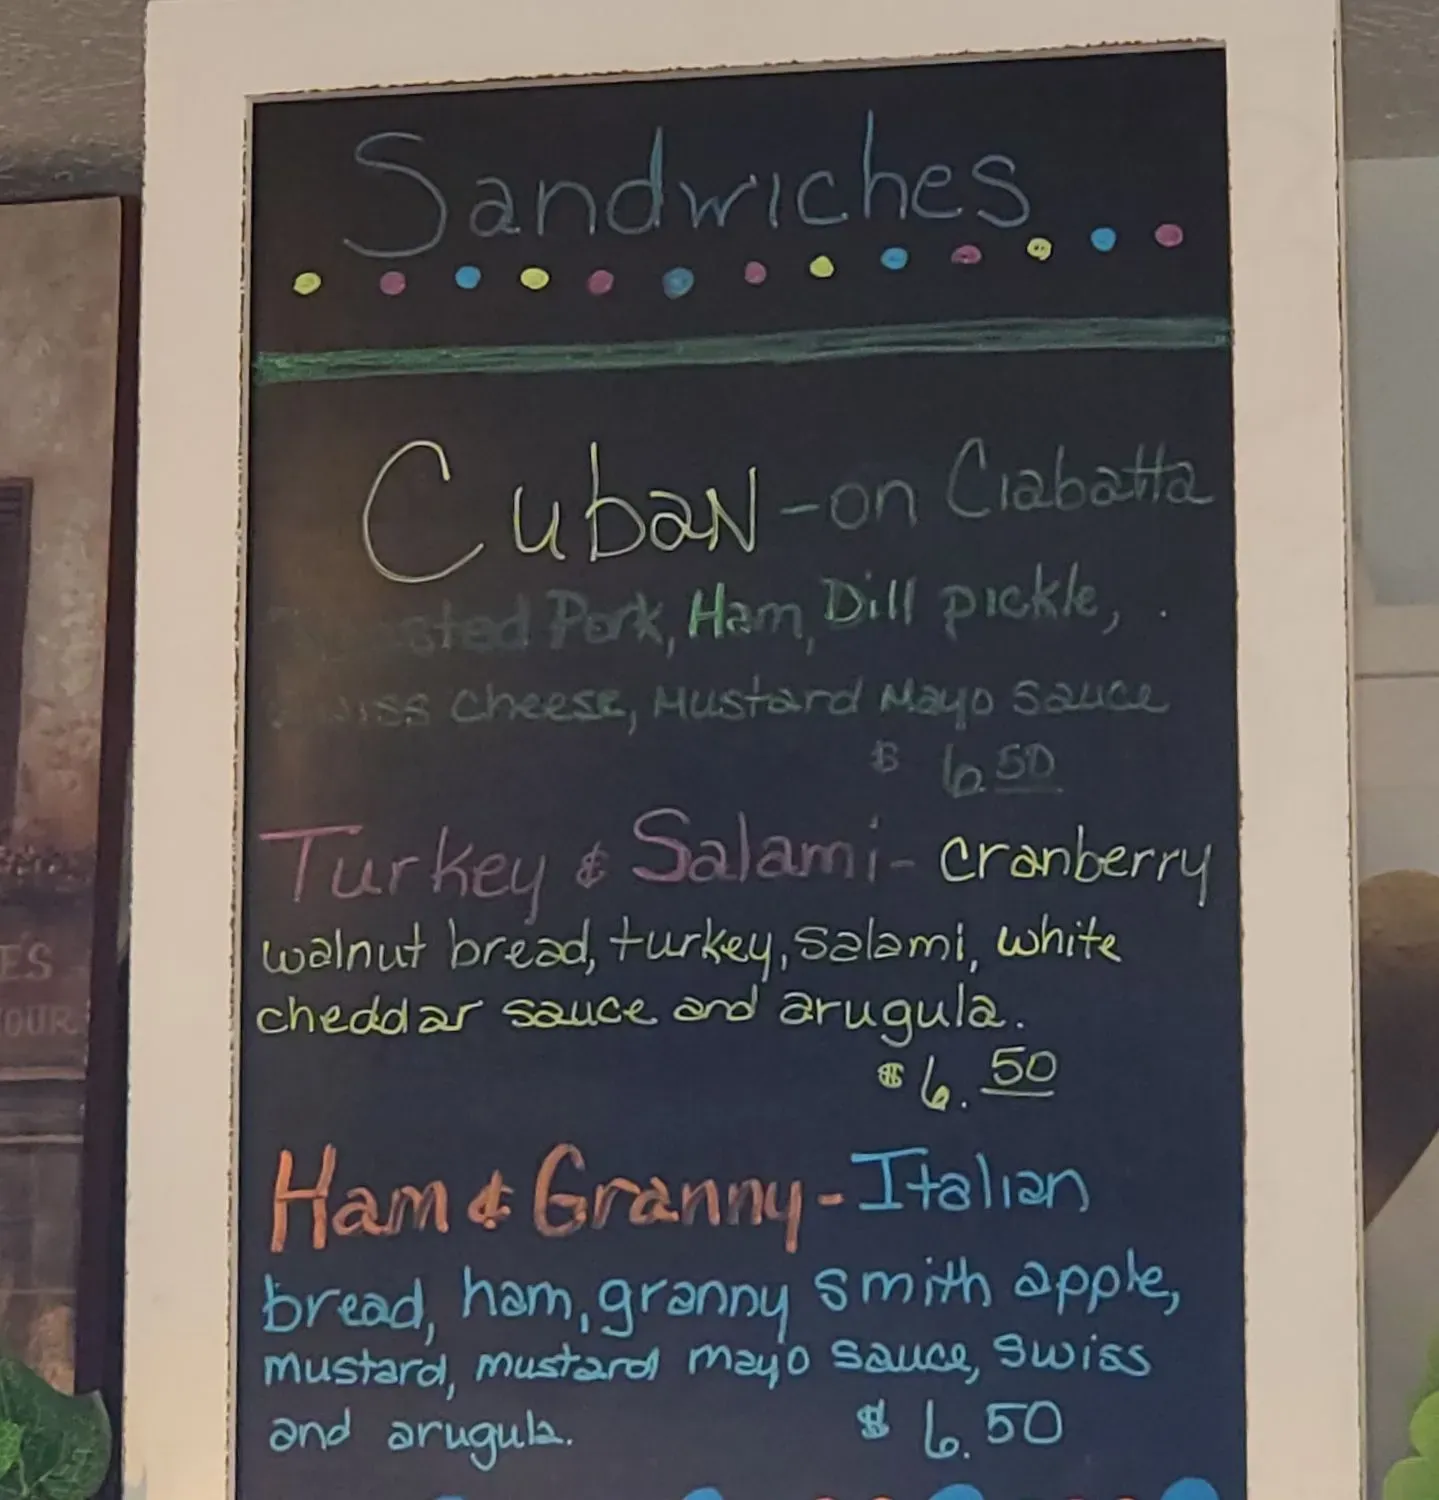 Sandwiches
Cuban - on Ciabatta
Pork, Ham, Dill pickle,
cheese, Mustard Mayo Sauce
$ 6.50
Turkey & Salami - cranberry
walnut bread, turkey, salami, white
cheddar sauce and arugula.
$ 6.50
Ham & Granny - Italian
bread, ham, granny smith apple,
mustard, mustard mayo sauce, swiss
and arugula. $ 6.50
ES
OUR